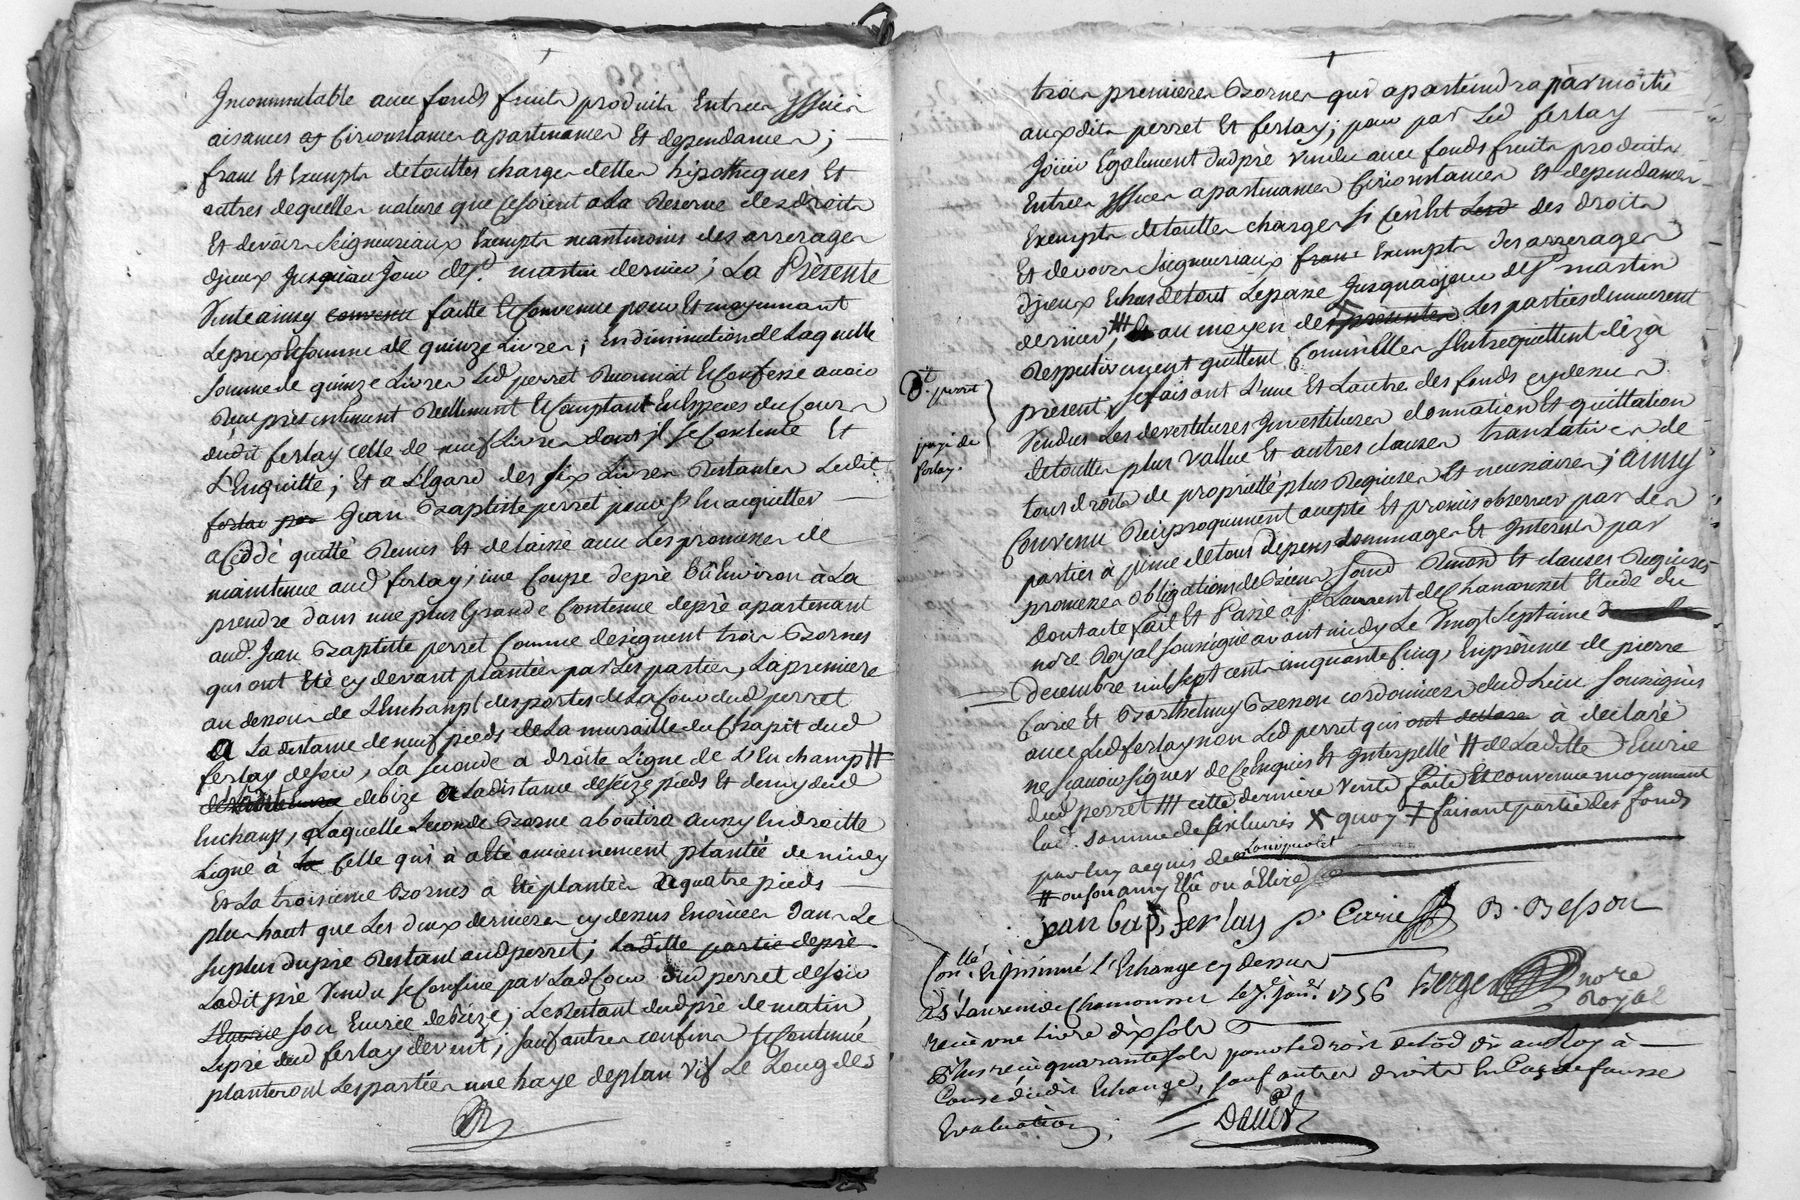 Incommutable avec fonds fruits produits Entrées Issües
aisances et Circonstances apartenances Et dependances ;
franc Et Exempts detouttes charges dettes hipotheques Et
autres dequelles nature que ce soient a La Reserve des droits
Et devoirs Seigneuriaux Exempts neantmoins des arrerages
d'jceux Jusquau Jour de st. martin dernier ; La Présente
Vente ainsy convenu faitte Et Convenue pour Et moyennant
Le prix Et somme de quinze Livres ; en diminution de Laquelle
somme de quinze Livres Led perret Reconnoit Et Confesse avoir
Receu présentement Reellement Et Comptant En Especes du Cours
dudit ferlay celle de neuf Livres dont jl se Contente Et
L'Enquitte ; Et a L'Egard des six Livres Restantes Ledit
ferlay par Jean Baptiste perret pour s'En acquitter
a Cédé quitté Remis Et delaissé avec Les promesses de
maintenue aud ferlay ; une Coupe de pré Ou Environ à La
prendre dans une plus Grande Contenue de pré apartenant
aud. Jean Baptiste perret Comme designent trois Bornes
qui ont Eté cy devant plantées par Les parties, La premiere
au dessous de L'Enchamp des portes de La Cour dud perret
a La distance de neuf pieds de La muraille du Chapit dud
ferlay de soir, La seconde a droite Ligne de L'Enchamp #
de bize a La distance de seize pieds Et demy dud
Enchamp, Laquelle seconde Borne aboutira aussy En droitte
Ligne à La Celle qui à été anciennement plantée de midy
Et La troisieme Bornes a Eté plantée a quatre pieds
plus haut que Les deux dernieres cy dessus Enoncées dans Le
suplus du pré Restant aud perret ; Laditte partie de pré
Ledit pré Vendu se Confine par La d Cour dud perret de soir
son Ecurie de bize ; Le Restant dud pré de matin,
Le pré dud ferlay de vent ; sauf autres confins se Continue
planteront Les parties une haye de plan vif Le Long des
trois premieres Bornes qui apartiendra par moitié
auxdits perret Et ferlay ; pour par Led ferlay
Joüir Egalement dud pré Vendu avec fonds fruits produits
Entrées Issües apartenances Circonstances Et dependances
Exempts de touttes charges si Ce n'est des droits
Et devoirs Seigneuriaux franc Exempts des arrerages
d'jceux Echus de tout Le passé Jusqu'a jour de st martin
dernier, ### au moyen de Les parties demeurent
Respectivement quittent Comm'Elles s'Entrequittent dèz à
présent ; se faisant L'une Et L'autre des fonds cy dessus
Vendus Les devestitures Investitures donnation Et quittation
de touttes plus vallue Et autres clauses translatives de
tous droits de proprietté plus Requises Et necessaires ; ainsy
Convenu Reciproquement accepté Et promis observer par Les
parties à peine de tous depens dommages Et Interets par
promesses obligations de Biens soumis Renon Et clauses Requises
Dont acte fait Et Passé a st Laurent de Chamousset Etude du
nore Royal soussigné avant midy Le Vingt Septieme
Decembre mil sept cents cinquante Cinq, En présence de pierre
Carie Et Barthelmy Besson cordonniers dud Lieu soussignés
avec Led ferlay non Led perret qui ont declare à declaré
ne sçavoir signer de ce Enquis Et Interpellé # de Laditte Ecurie
dud perret ### cette derniere Vente faite Et convenue moyennant
lad. somme de six livres X quoy ‡ faisant partie des fonds
par luy acquis de Lonvignolet
# ou son amy Elu ou à Elire
D.t perret
jean bap ferlay p. Carie B. Besson
Con.llé Et Insinué L'Echange cy dessus
a S.t Laurent de Chamousset Le 7e Janr. 1756
Berger nore
Royal
recu une livre dix sols
Plus recu quarante sols pour le droit de lod dû au Roy à
Cause dudit Echange, sauf autres droits En Cas de fausse
Evaluation.
David